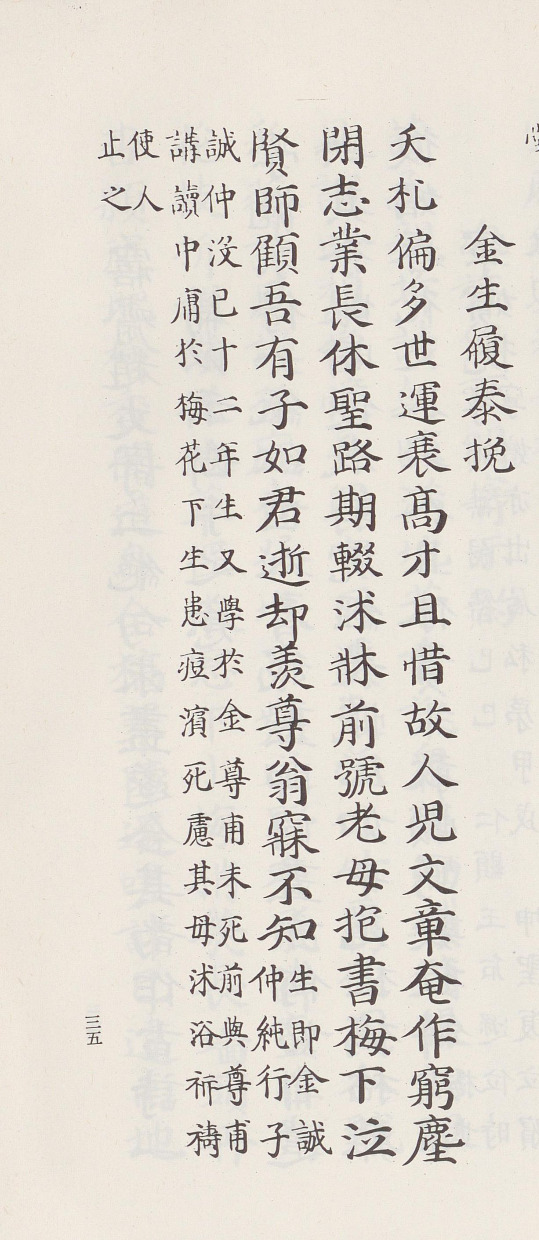 金生履泰挽
夭札偏多世運衰髙才且惜故人児文章奄作窮塵
閉志業長休聖路期輟沭牀前號老母抱書梅下泣
賢師顧吾有子如君逝却羨尊翁寐不知
生即金誠
仲純行子
誠仲沒已十二年生又學於金尊甫未死前與尊甫
講讀中庸於梅花下生患痘濱死慮其母沭浴祈禱
使人
止之